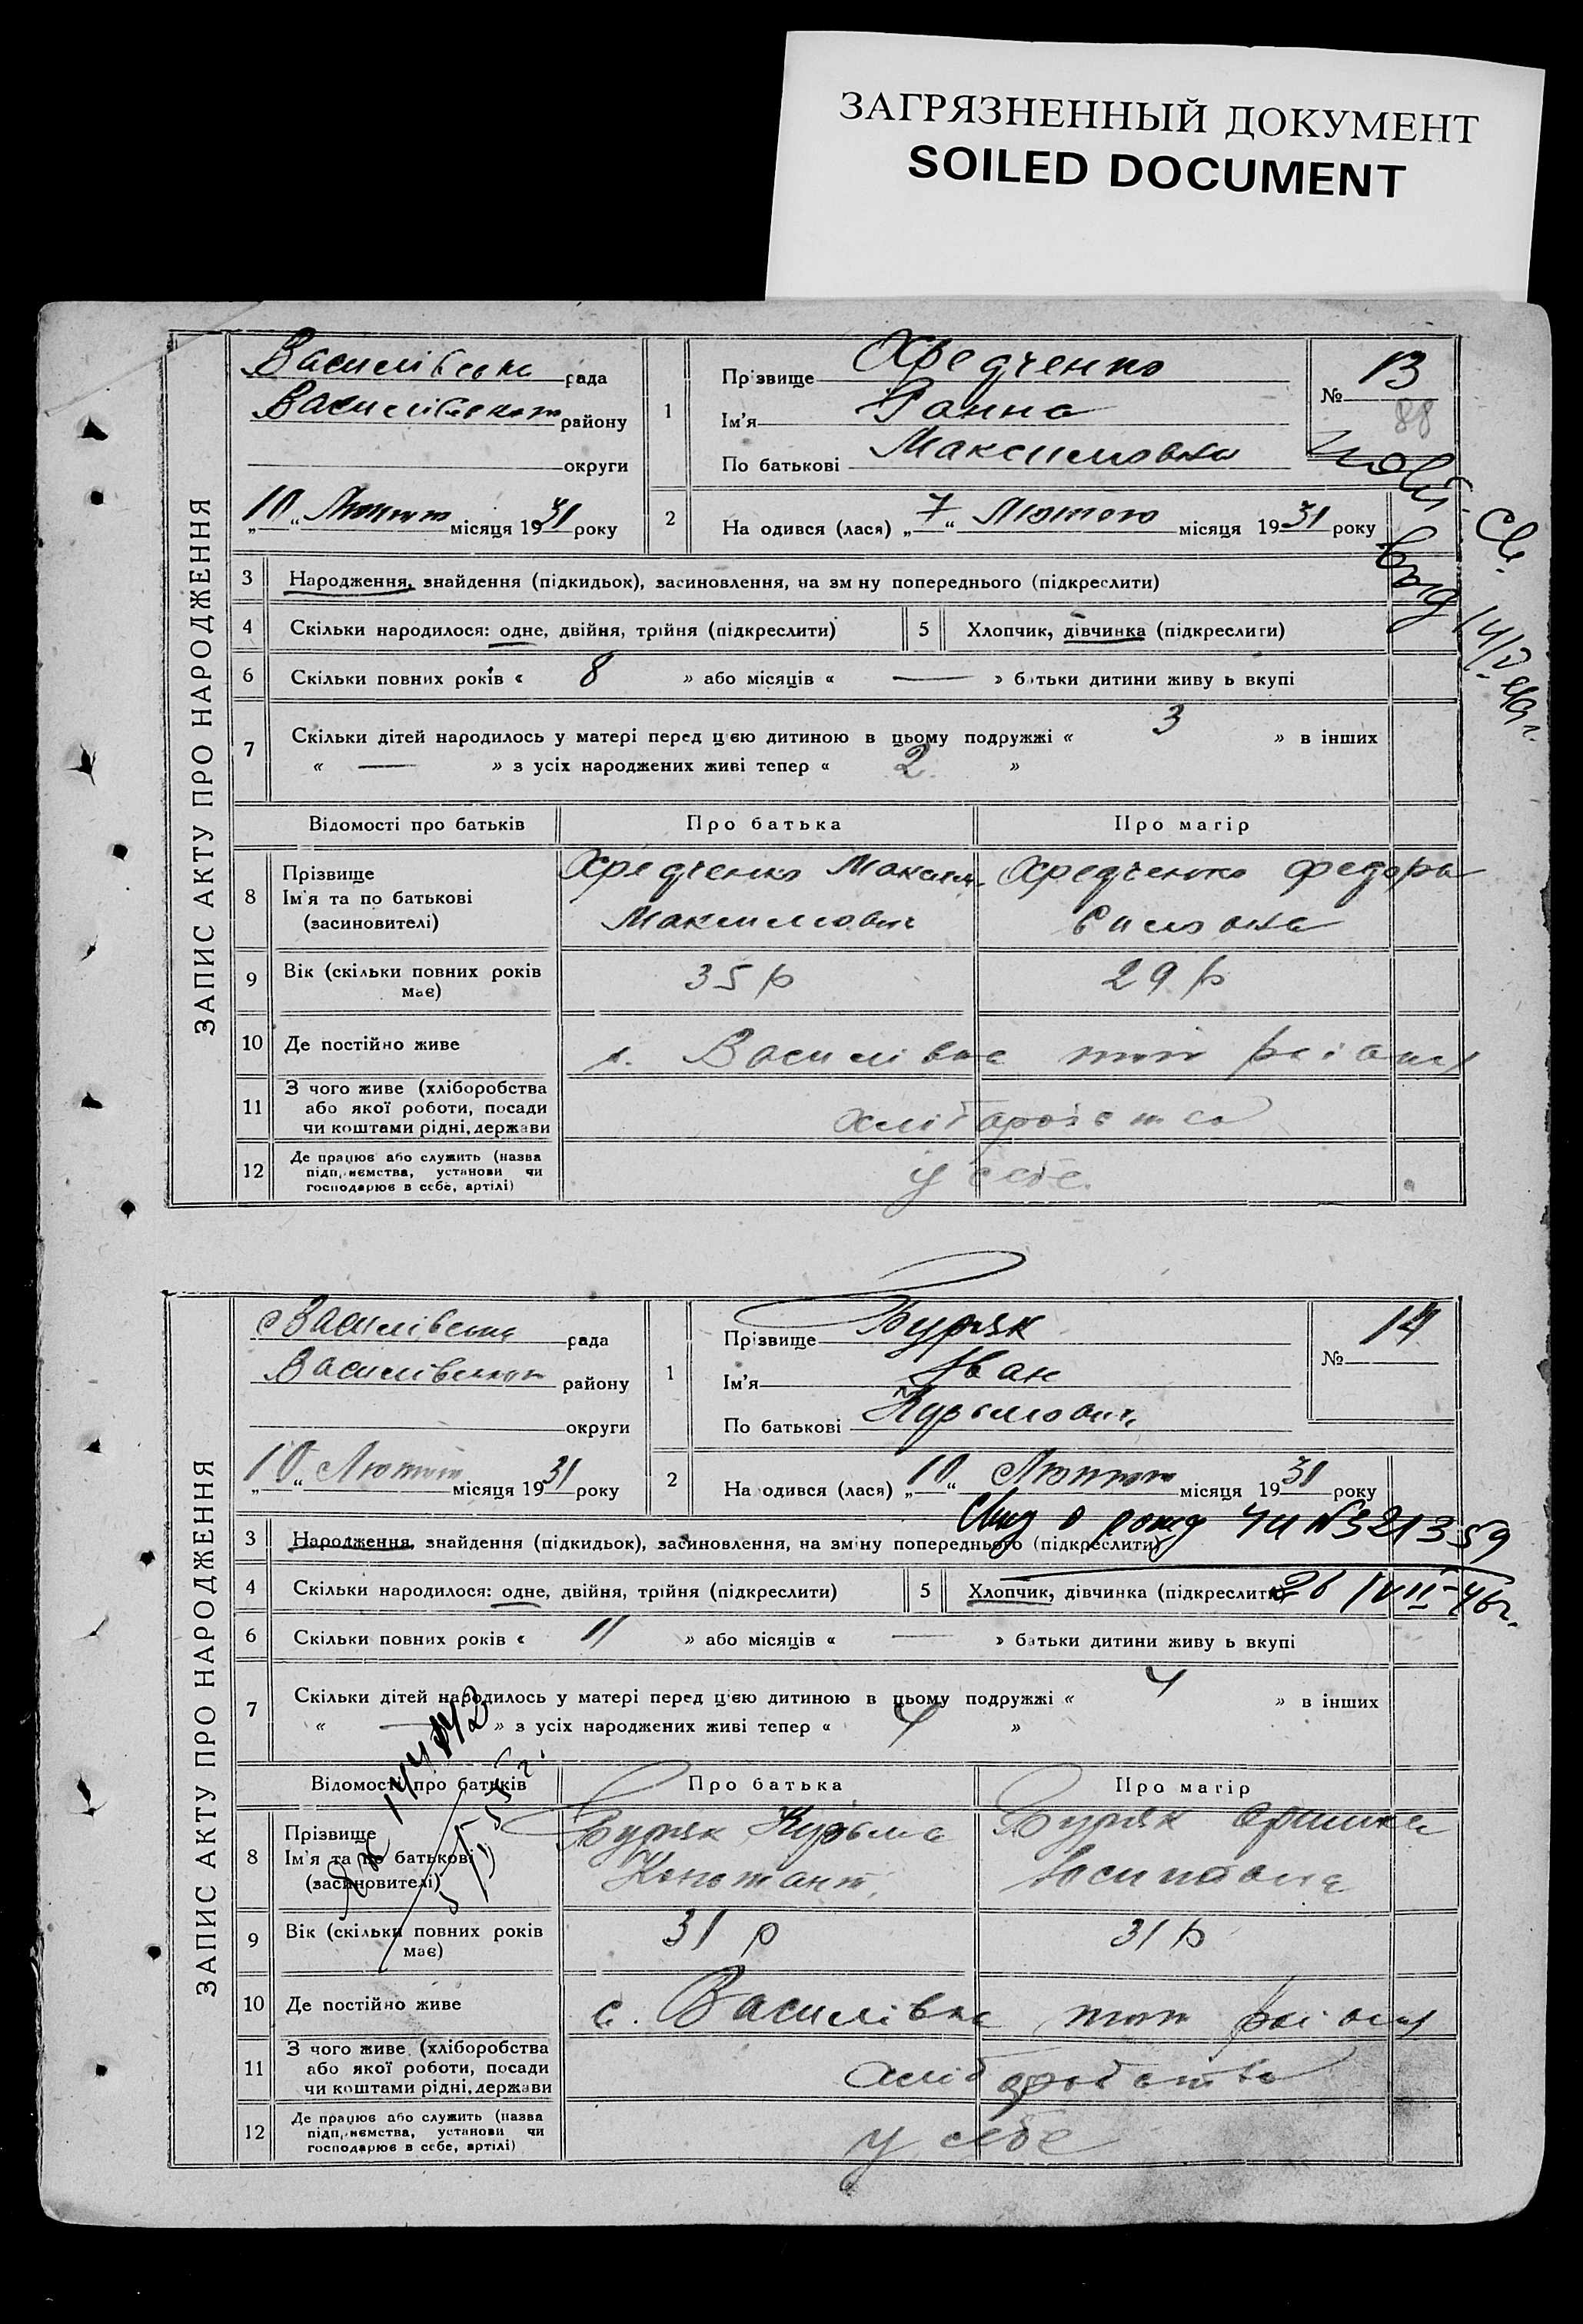 ЗАГРЯЗНЕННЫЙ ДОКУМЕНТ
SOILED DOCUMENT
ЗАПИС АКТУ ПРО НАРОДЖЕННЯ
Василівська рада
Василівського району
округи
„10“ Лютого місяця 1931 року
1
Прізвище
Ім'я Ганна
По батькові Максимовна
№ 13
88
2
На одився (лася) „7“ Лютого місяця 1931 року
3 Народження, знайдення (підкидьок), засиновлення, на зм ну попереднього (підкреслити)
4 Скільки народилося: одне, двійня, трійня (підкреслити)
5 Хлопчик, дівчинка (підкреслити)
6 Скільки повних років « 8 » або місяців « — » батьки дитини живу ь вкупі
7 Скільки дітей народилось у матері перед цією дитиною в цьому подружжі « 3 » в інших
« — » з усіх народжених живі тепер « 2 »
Відомості про батьків Про батька Про матір
8 Прізвище
Ім'я та по батькові
(засиновителі)
Максим
Максимович
9 Вік (скільки повних років
має)
35 р 29 р
10 Де постійно живе с. Василівка того району
11 З чого живе (хліборобства
або якої роботи, посади
чи коштами рідні, держави
хліборобство
12 Де працює або служить (назва
підприємства, установи чи
господарює в себе, артілі)
у себе
ЗАПИС АКТУ ПРО НАРОДЖЕННЯ
Василівська рада
Василівського району
округи
„10“ Лютого місяця 1931 року
1
Прізвище Буряк
Ім'я Іван
По батькові Курьмович
№ 14
2
На одився (лася) „10“ Лютого місяця 1931 року
3 Народження, знайдення (підкидьок), засиновлення, на зміну попереднього (підкреслити)
4 Скільки народилося: одне, двійня, трійня (підкреслити)
5 Хлопчик, дівчинка (підкреслити)
26/VII-46г.
6 Скільки повних років « 11 » або місяців « — » батьки дитини живу ь вкупі
7 Скільки дітей народилось у матері перед цією дитиною в цьому подружжі « 4 » в інших
« — » з усіх народжених живі тепер « 4 »
Відомості про батьків Про батька Про матір
8 Прізвище
Ім'я та по батькові
(засиновителі)
Буряк Курьма
Констант.
Буряк
9 Вік (скільки повних років
має)
31 р 31 р
10 Де постійно живе с. Василівка того району
11 З чого живе (хліборобства
або якої роботи, посади
чи коштами рідні, держави
хліборобство
12 Де працює або служить (назва
підприємства, установи чи
господарює в себе, артілі)
у себе